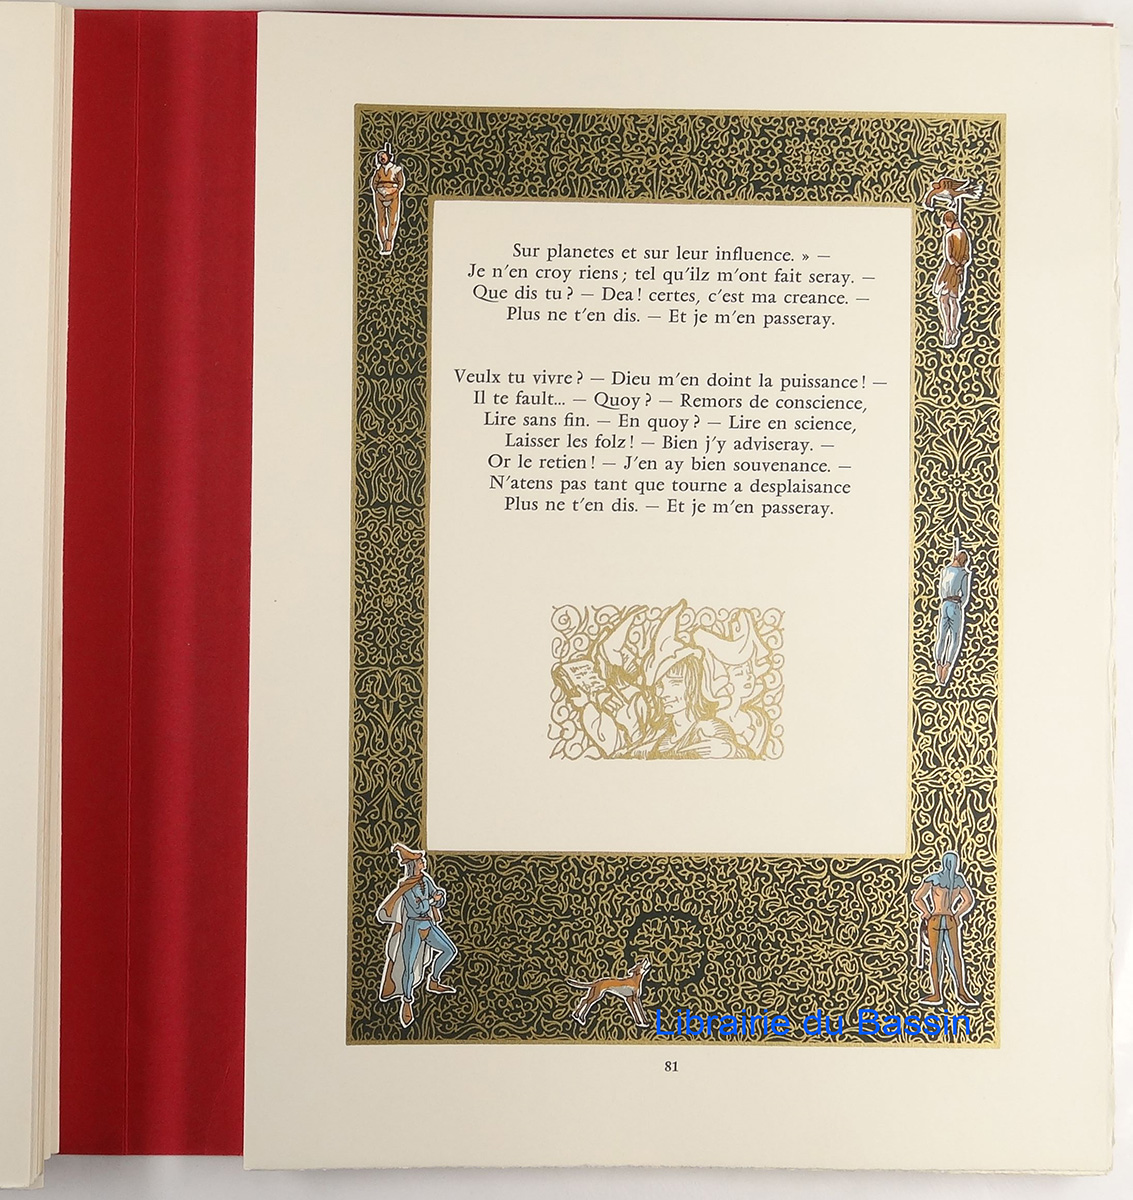 Sur planetes et sur leur influence. » —
Je n'en croy riens ; tel qu'ilz m'ont fait seray. —
Que dis tu ? — Dea ! certes, c'est ma creance. —
Plus ne t'en dis. — Et je m'en passeray.
Veulx tu vivre ? — Dieu m'en doint la puissance ! —
Il te fault... — Quoy ? — Remors de conscience,
Lire sans fin. — En quoy ? — Lire en science,
Laisser les folz ! — Bien j'y adviseray. —
Or le retien ! — J'en ay bien souvenance. —
N'atens pas tant que tourne a desplaisance
Plus ne t'en dis. — Et je m'en passeray.
Librairie du Bassin
81